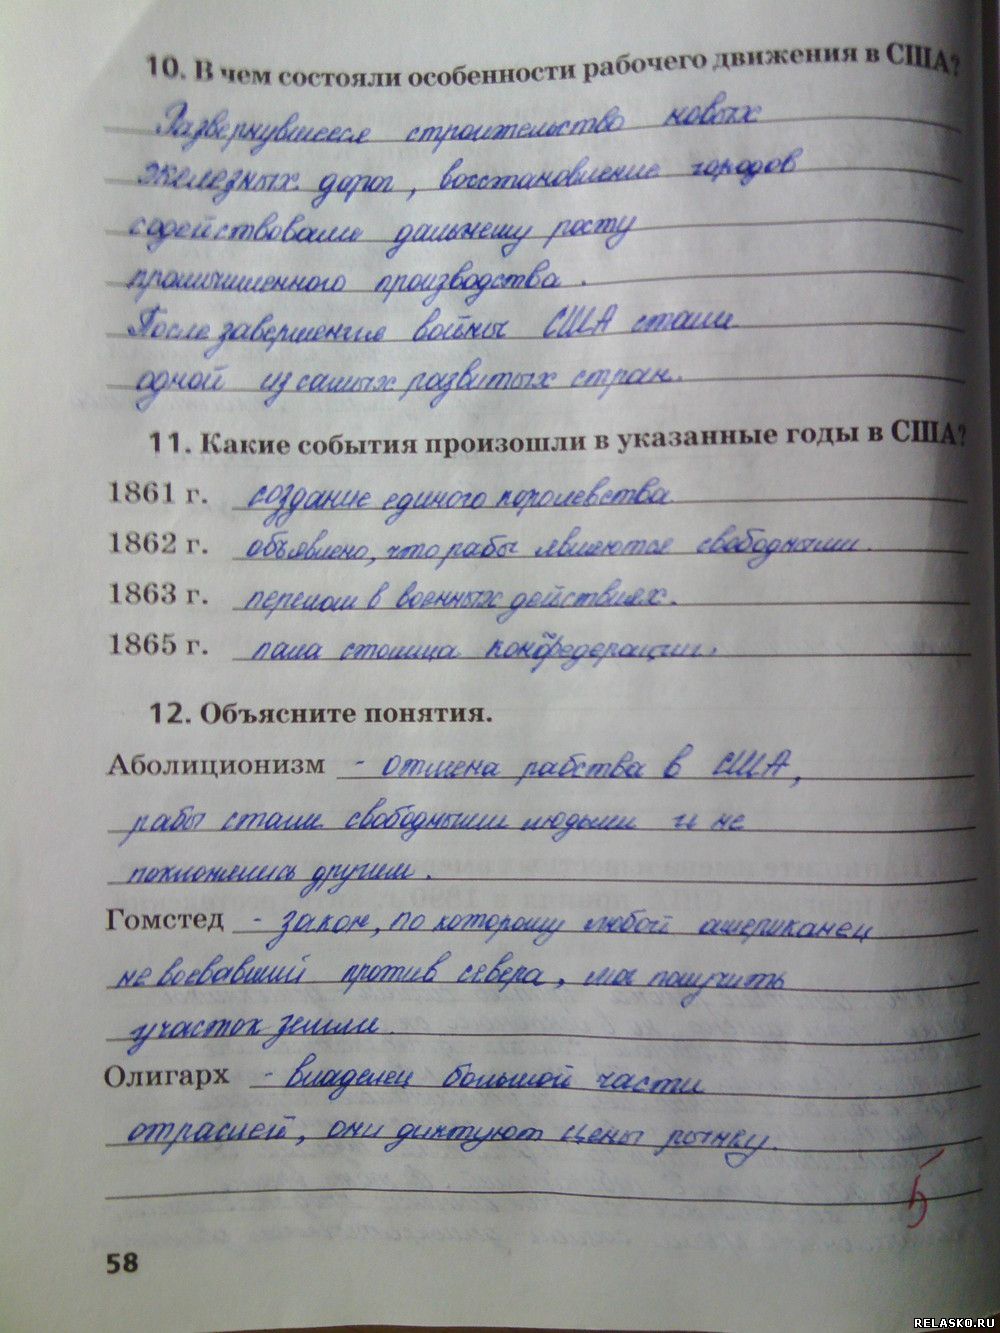 10. В чем состояли особенности рабочего движения в США?
Развернувшееся строительство новых
железных дорог, восстановление городов
содействовали дальнешу росту
промышленного производства.
После завершения войны США стали
одной из самых развитых стран.
11. Какие события произошли в указанные годы в США?
1861 г. создание единого королевства
1862 г. объявлено, что рабы являются свободными.
1863 г. перелом в военных действиях.
1865 г. пала столица конфедерации.
12. Объясните понятия.
Аболиционизм - отмена рабства в США,
рабы стали свободными людьми и не
поклонялись другим.
Гомстед - закон, по которому любой американец
не воевавший против севера, мог получить
участок земли.
Олигарх - владелец большой части
отраслей, они диктуют цены рынку.
5
58
RELASKO.RU